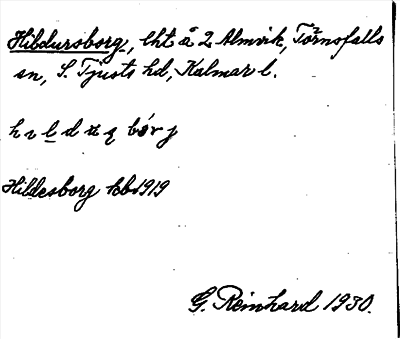 Hildursborg, lht å 2 Almvik, Törnsfalls
sn, S. Tjusts hd, Kalmar l.
Hildesborg kb 1919
G. Reinhard 1930.